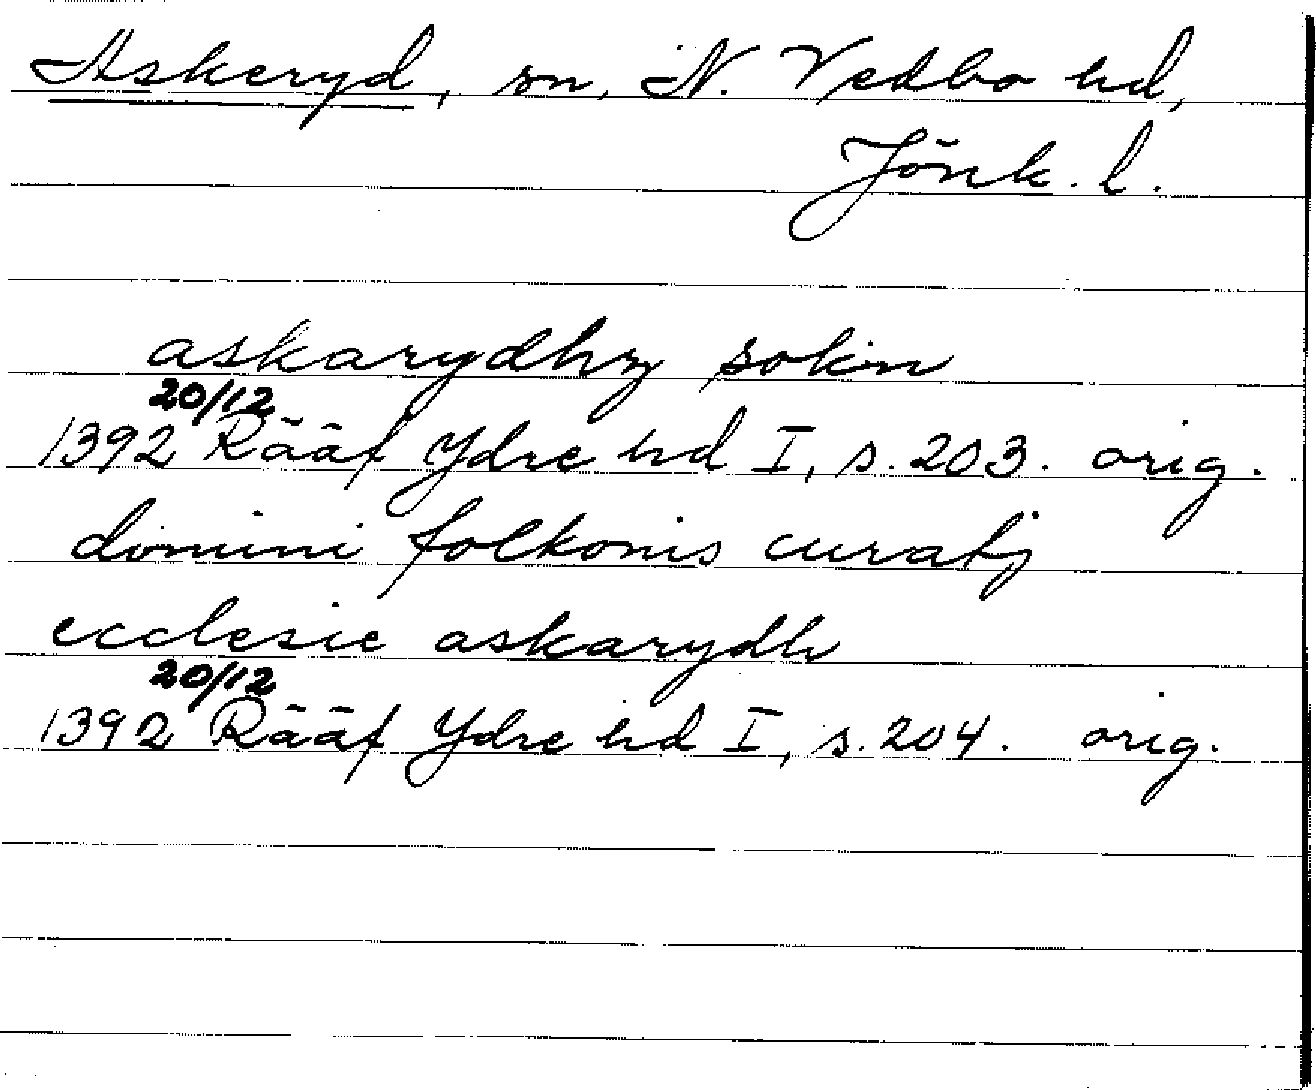 Askeryd, sn, N. Vedbo hd,
Jönk. l.
askarydhz sokn
20/12
1392 Rääf Ydre hd I, s. 203. orig.
domini folkonis curatj
ecclesie askarydh
20/12
1392 Rääf Ydre hd I, s. 204. orig.